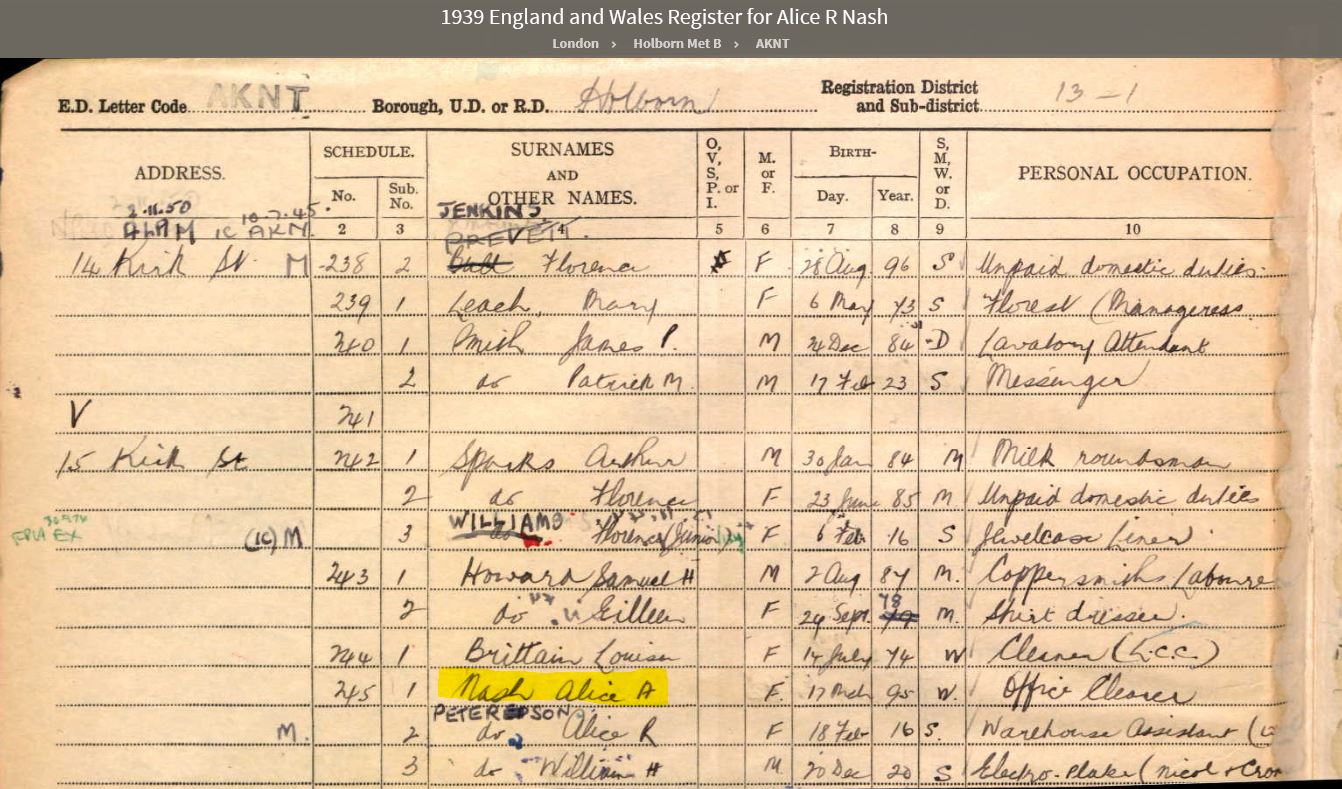 1939 England and Wales Register for Alice R Nash
London › Holborn Met B › AKNT
E.D. Letter Code AKNT Borough, U.D. or R.D. Holborn Registration District and Sub-district 13-1
ADDRESS. SCHEDULE. No. Sub. No. SURNAMES AND OTHER NAMES. O, V, S, P. or I. M. or F. BIRTH- Day. Year. S, M, W. or D. PERSONAL OCCUPATION.
2.11.50 10.7.45 JENKINS
2 3 4 5 6 7 8 9 10
PREVETT
14 Kirk St. M 238 2 Butt Florence F 28 Aug. 96 S Unpaid domestic duties.
239 1 Leach, Mary F 6 May 73 S Florest (Manageress
240 1 James P. M 24 Dec 84 D Lavatory Attendant
2 do Patrick M. M 17 Feb 23 S Messenger
V 241
15 Kirk St 242 1 Sparks Arthur M 30 Jan 84 M Milk roundsman
2 do Florence F 23 June 85 M Unpaid domestic duties
WILLIAMS
(1C) M 3 do Florence (Junior) F 6 Feb 16 S Jewelcase Liner
243 1 Howard Samuel H M 2 Aug 87 M. Coppersmiths Laboure
78
2 do Eilleen F 24 Sept. 79 M. Shirt dresser.
244 1 Brittain Louisa F 14 July 74 W Cleaner (L.C.C.)
245 1 Nash Alice A F. 17 Mch 95 W. Office Cleaner
PETEREDSON
M. 2 do Alice R F 18 Feb 16 S. Warehouse Assistant
3 do William H M 20 Dec 20 S Electro-Plater (Nicol &